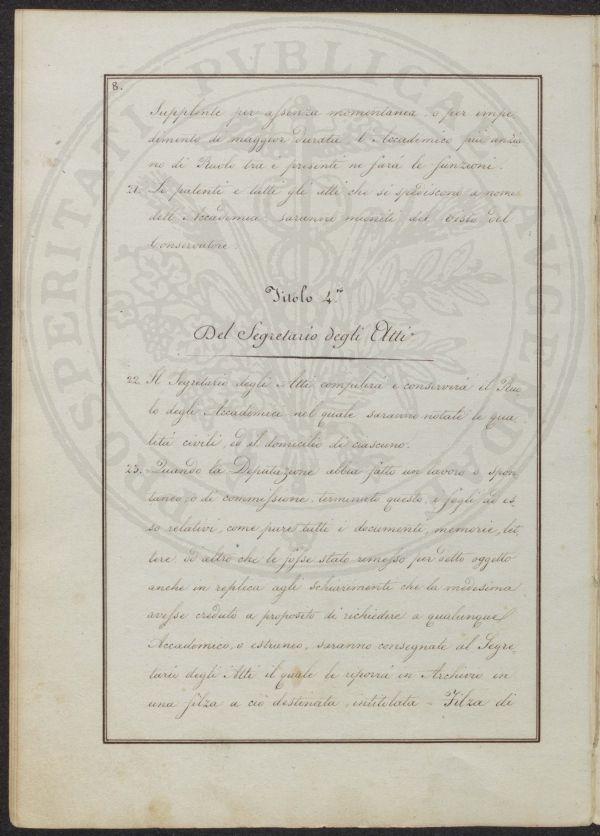 8.
Supplente per assenza momentanea, o per impe-
dimento di maggior durata l'Accademico più anzia
no di Ruolo tra i presenti ne farà le funzioni.
21. Le patenti e tutti gli atti che si spediscono a nome
dell'Accademia saranno muniti del visto del
Conservatore.
Titolo 4.to
Del Segretario degli Atti
22. Il Segretario degli Atti compilerà e conserverà il Ruo-
lo degli Accademici nel quale saranno notati le qua
lità civili, ed il domicilio di ciascuno.
23. Quando la Deputazione abbia fatto un lavoro o spon
taneo, o di commissione, terminato questo, i fogli ad es-
so relativi, come pure tutti i documenti, memorie, let-
tere ed altro che le fosse stato rimesso per detto oggetto
anche in replica agli schiarimenti che la medesima
avesse creduto a proposito di richiedere a qualunque
Accademico, o estraneo, saranno consegnate al Segre-
tario degli Atti il quale le riporrà in Archivio in
una filza a ciò destinata, intitolata = Filza di
PROSPERITATI PVBLICAE AVGENDAE